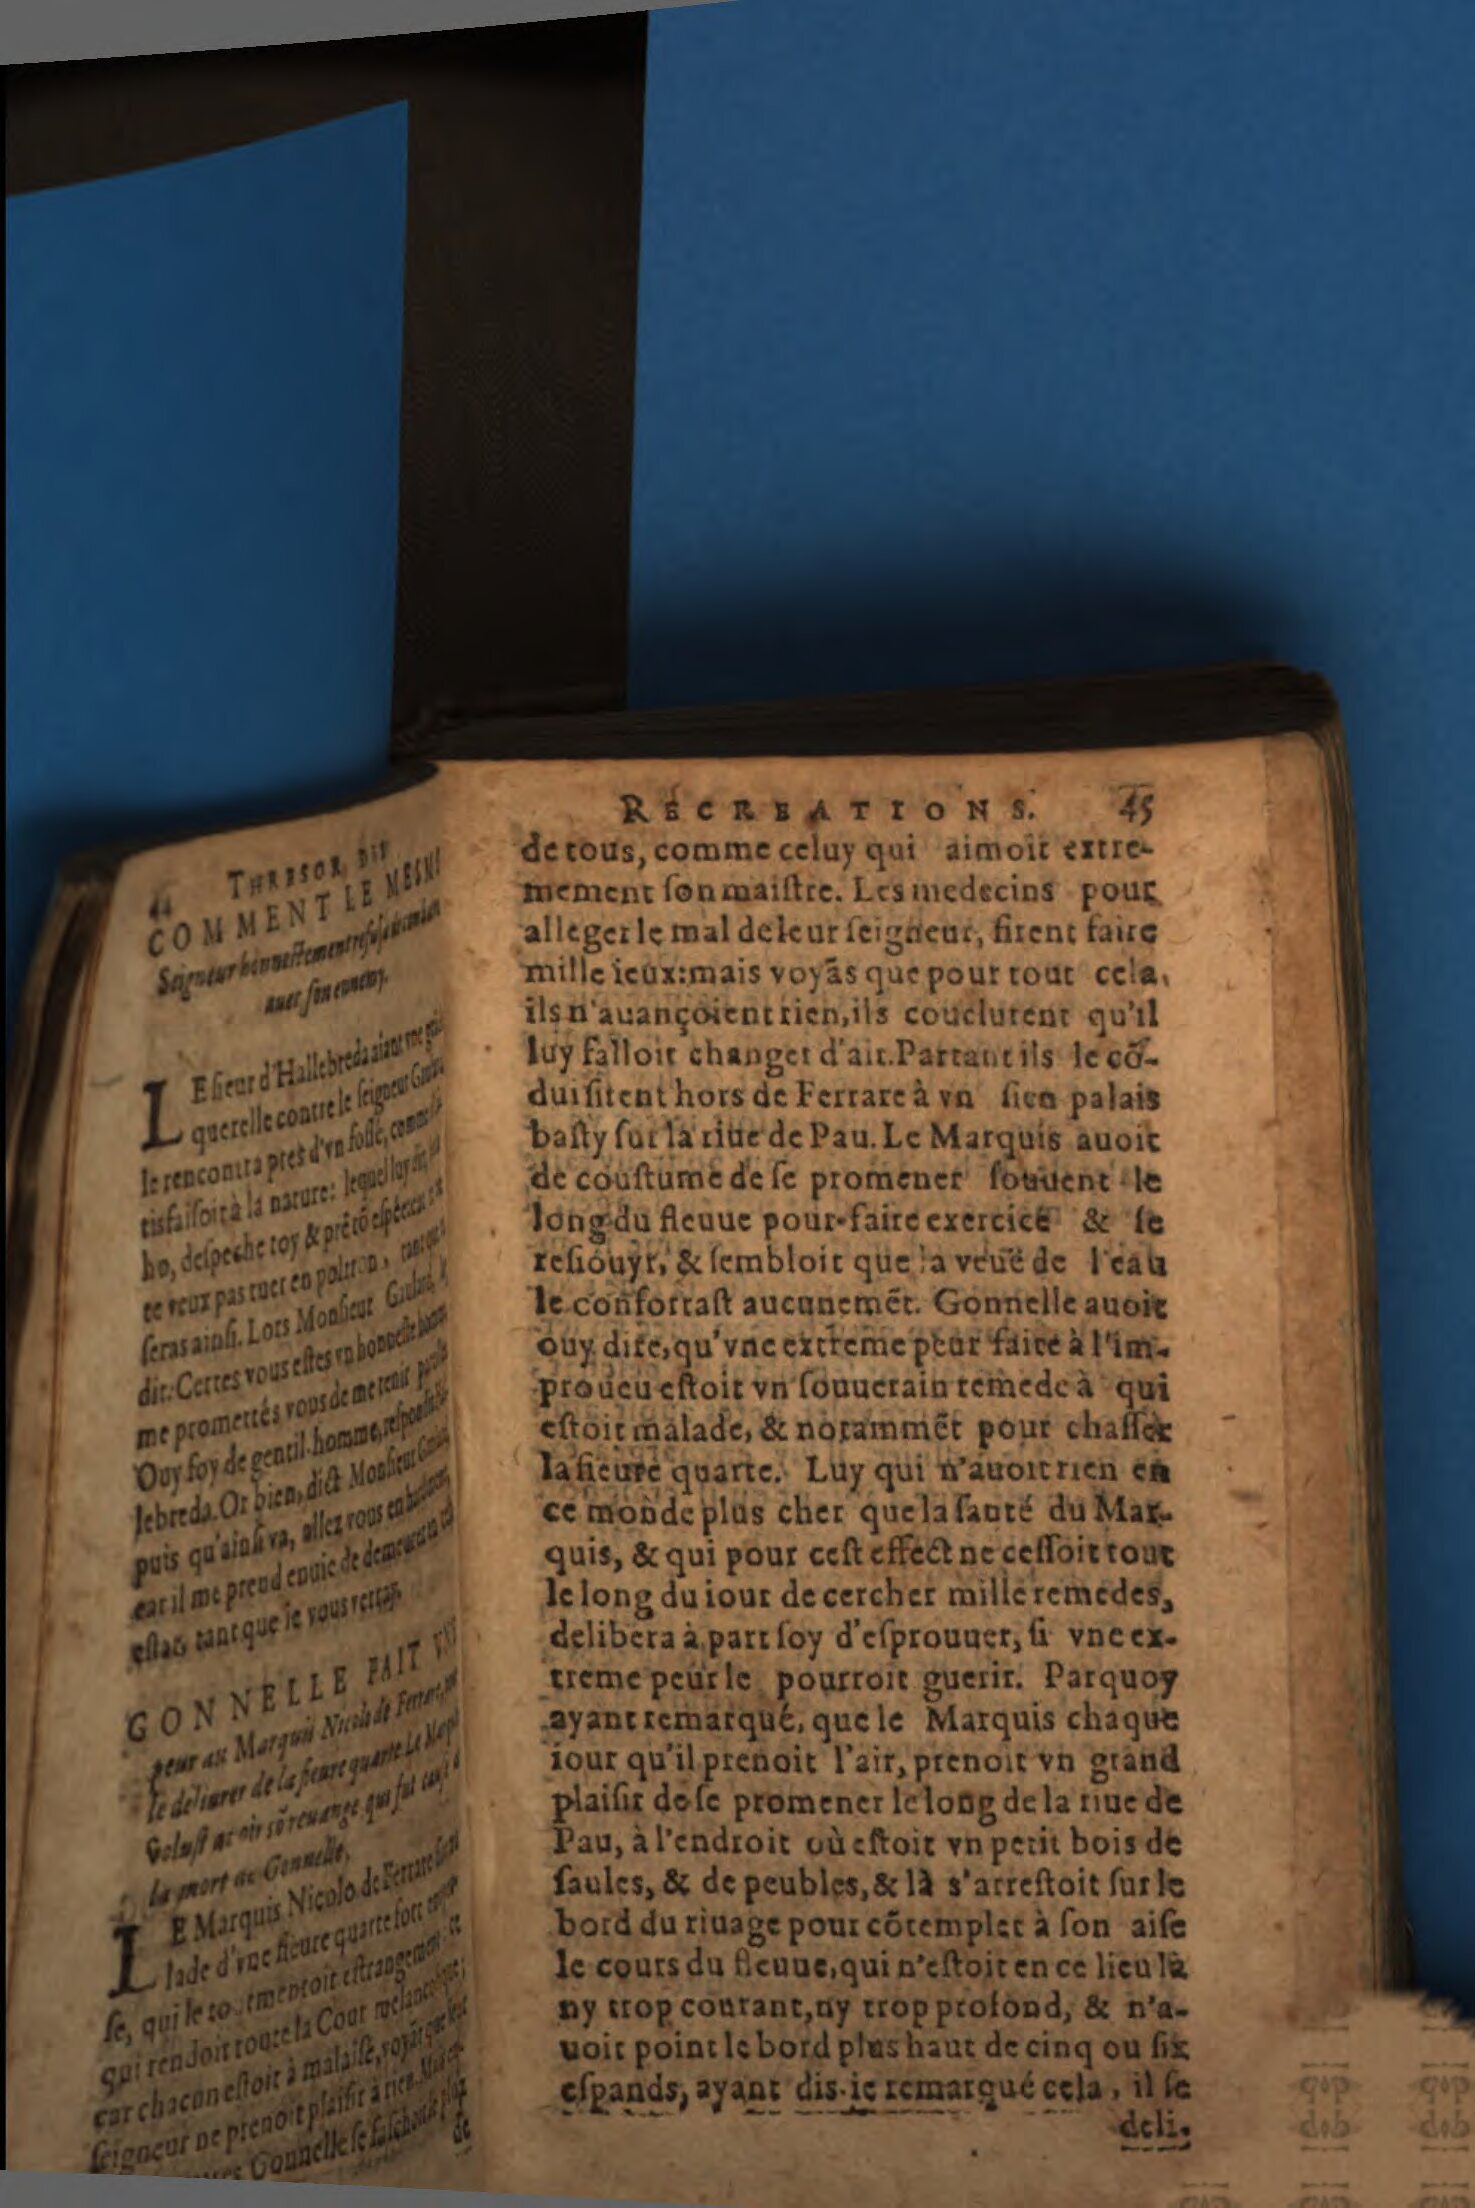 44 THRESOR DES
COMMENT LE MESME
Seigneur honnestement refusa
auec son ennemy.
LE sieur d'Hallebreda aiant vne
querelle contre le seigneur
le rencontra pres d'vn fossé, comme
tisfaisoit à la nature: lequel luy
ho, despeche toy &
te veux pas tuer en poltron,
seras ainsi. Lors Monsieur Gaulard,
dit: Certes vous estes vn honneste
me promettés vous de me tenir
Ouy foy de gentil-homme, respond
lebreda. Or bien, dict Monsieur
puis qu'ainsi va, allez vous en
car il me prend enuie de demeurer
estat, tant que ie vous verray.
GONNELLE FAIT VNE
peur au Marquis Nicolo de Ferrare,
le deliurer de la fieure quarte. Le
volust auoir sõ reuange qui fut
la mort de Gonnelle.
LE Marquis Nicolo de Ferrare
lade d'vne fieure quarte fort
se, qui le tourmentoit estrangement,
qui rendoit toute la Cour
car chacun estoit à malaise, voyãt que
seigneur ne prenoit plaisir à rien.
Gonnelle se faschoit plus
de
RECREATIONS. 45
de tous, comme celuy qui aimoit extre-
mement ſon maiſtre. Les medecins pour
alleger le mal de leur ſeigneur, firent faire
mille ieux: mais voyãs que pour tout cela,
ils n'auançoient rien, ils couclurent qu'il
luy falloit changer d'air. Partant ils le cõ-
duiſirent hors de Ferrare à vn ſien palais
baſty ſur la riue de Pau. Le Marquis auoit
de couſtume de ſe promener ſouuent le
long du fleuue pour-faire exercice & ſe
reſiouyr, & ſembloit que la veuë de l'eau
le confortaſt aucunemẽt. Gonnelle auoit
ouy dire, qu'vne extreme peur faite à l'im-
proueu eſtoit vn ſouuerain remede à qui
eſtoit malade, & notammẽt pour chaſſer
la fieure quarte. Luy qui n'auoit rien en
ce monde plus cher que la ſanté du Mar-
quis, & qui pour ceſt effect ne ceſſoit tout
le long du iour de cercher mille remedes,
delibera à part ſoy d'eſprouuer, ſi vne ex-
treme peur le pourroit guerir. Parquoy
ayant remarqué, que le Marquis chaque
iour qu'il prenoit l'air, prenoit vn grand
plaiſir de ſe promener le long de la riue de
Pau, à l'endroit où eſtoit vn petit bois de
ſaules, & de peubles, & là s'arreſtoit ſur le
bord du riuage pour cõtempler à ſon aiſe
le cours du fleuue, qui n'eſtoit en ce lieu là
ny trop courant, ny trop profond, & n'a-
uoit point le bord plus haut de cinq ou ſix
eſpands, ayant dis-ie remarqué cela, il ſe
deli-